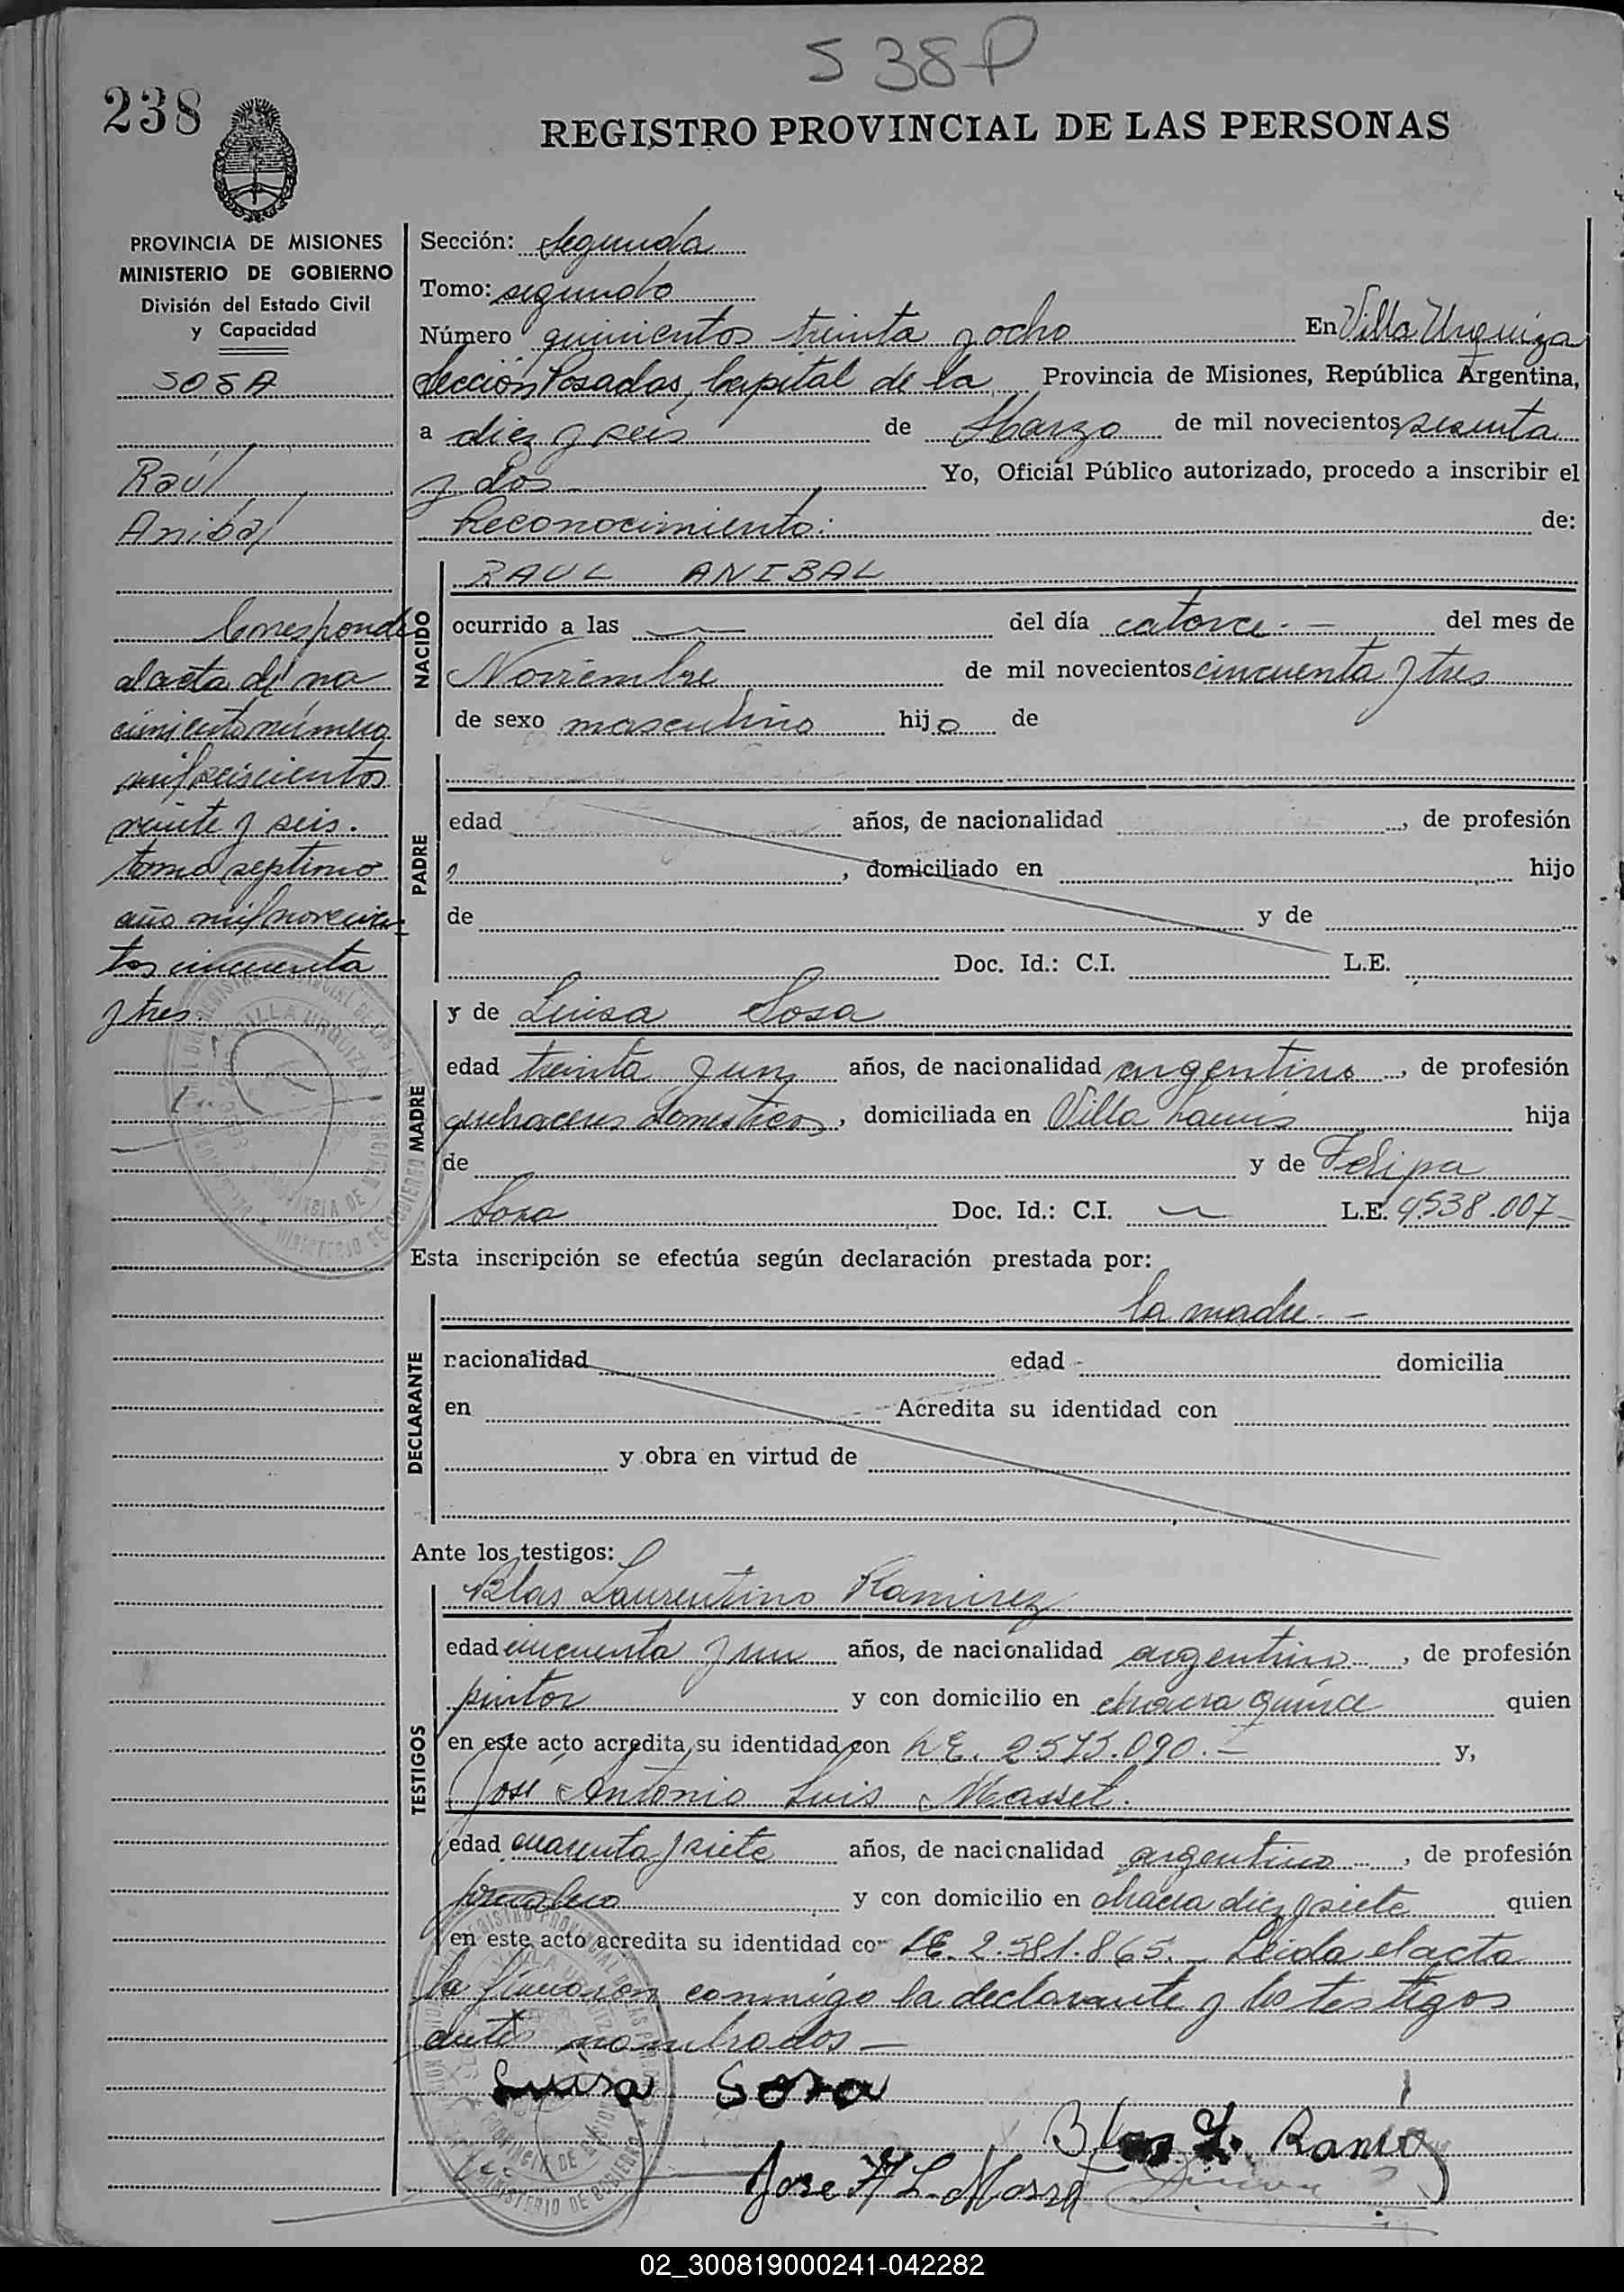 538P
238
REGISTRO PROVINCIAL DE LAS PERSONAS
PROVINCIA DE MISIONES
MINISTERIO DE GOBIERNO
División del Estado Civil
y Capacidad
SOSA
Raúl
Anibal
Corresponde
al acta de na
cimiento número
mil seiscientos
veinte y seis.
tomo septimo
año mil novecien-
tos cincuenta
y tres.
Sección: Segunda
Tomo: segundo
Número quinientos treinta y ocho En Villa Urquiza
Sección Posadas, Capital de la Provincia de Misiones, República Argentina,
a diez y seis de Marzo de mil novecientos sesenta
y dos Yo, Oficial Público autorizado, procedo a inscribir el
Reconocimiento: de:
NACIDO
RAUL ANIBAL
ocurrido a las — del día catorce.— del mes de
Noviembre de mil novecientos cincuenta y tres
de sexo masculino hijo de
PADRE
edad años, de nacionalidad , de profesión
, domiciliado en hijo
de y de
Doc. Id.: C.I. L.E.
MADRE
y de Luisa Sosa
edad treinta y un años, de nacionalidad argentina, de profesión
quehaceres domesticos, domiciliada en Villa Lanus hija
de y de Felipa
Sosa Doc. Id.: C.I. — L.E. 9.538.007-
Esta inscripción se efectúa según declaración prestada por:
DECLARANTE
la madre.—
nacionalidad edad domicilia
en Acredita su identidad con
y obra en virtud de
Ante los testigos:
TESTIGOS
Blas Laurentino Ramirez
edad cincuenta y un años, de nacionalidad argentino, de profesión
pintor y con domicilio en chacra quince quien
en este acto acredita su identidad con L.E. 2575.090.— y,
José Antonio Luis Masset.
edad cuarenta y siete años, de nacionalidad argentino, de profesión
jornalero y con domicilio en chacra diez y siete quien
en este acto acredita su identidad con L.E. 2.581.865.— Leida el acta
la firmaron conmigo la declarante y los testigos
antes nombrados—
Luisa Sosa
Blas L. Ramirez
Jose A L. Masset
02_300819000241-042282